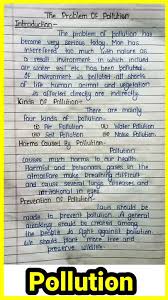 The Problem Of Pollution
Introduction-
The problem of pollution has
become very serious today. Man has
interfered too much with nature as
a result environment in which includes
air water soil etc has been polluted
If environment is polluted all shocks
of life human animal and vegetation
is affected directly and indirectly.
Kinds Of Pollution-
There are mainly
four kinds of pollution-
(i) Air Pollution (ii) Water Pollution
(iii) Soil Pollution (iv) Noise Pollution
Harms Caused By Pollution-
Pollution
causes much harms to our health.
Harmful and poisonous gases in the
atmosphere make breathing difficult
and cause several lungs diseases and
in eyes.
Prevention Of Pollution-
Laws should be
made to prevent pollution. A general
awakening should be created among
the people to fight against pollution.
We should plant more tree and
preserve wildlife.
Pollution